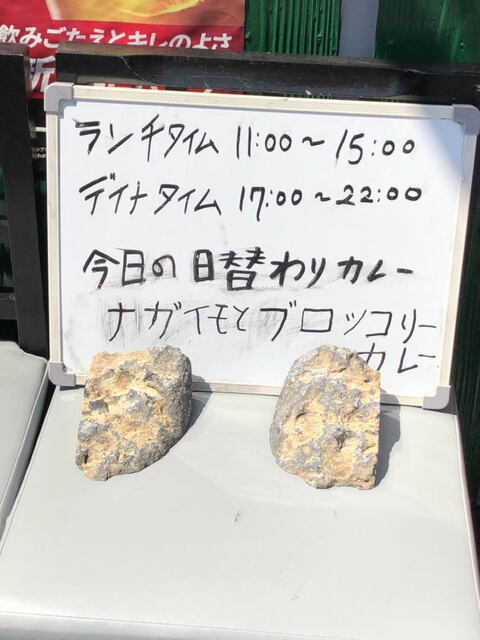 飲みごたえとキレのよさ
ランチタイム 11:00～15:00
デイナタイム 17:00～22:00
今日の日替わりカレー
ナガイモとブロッコリー
カレー